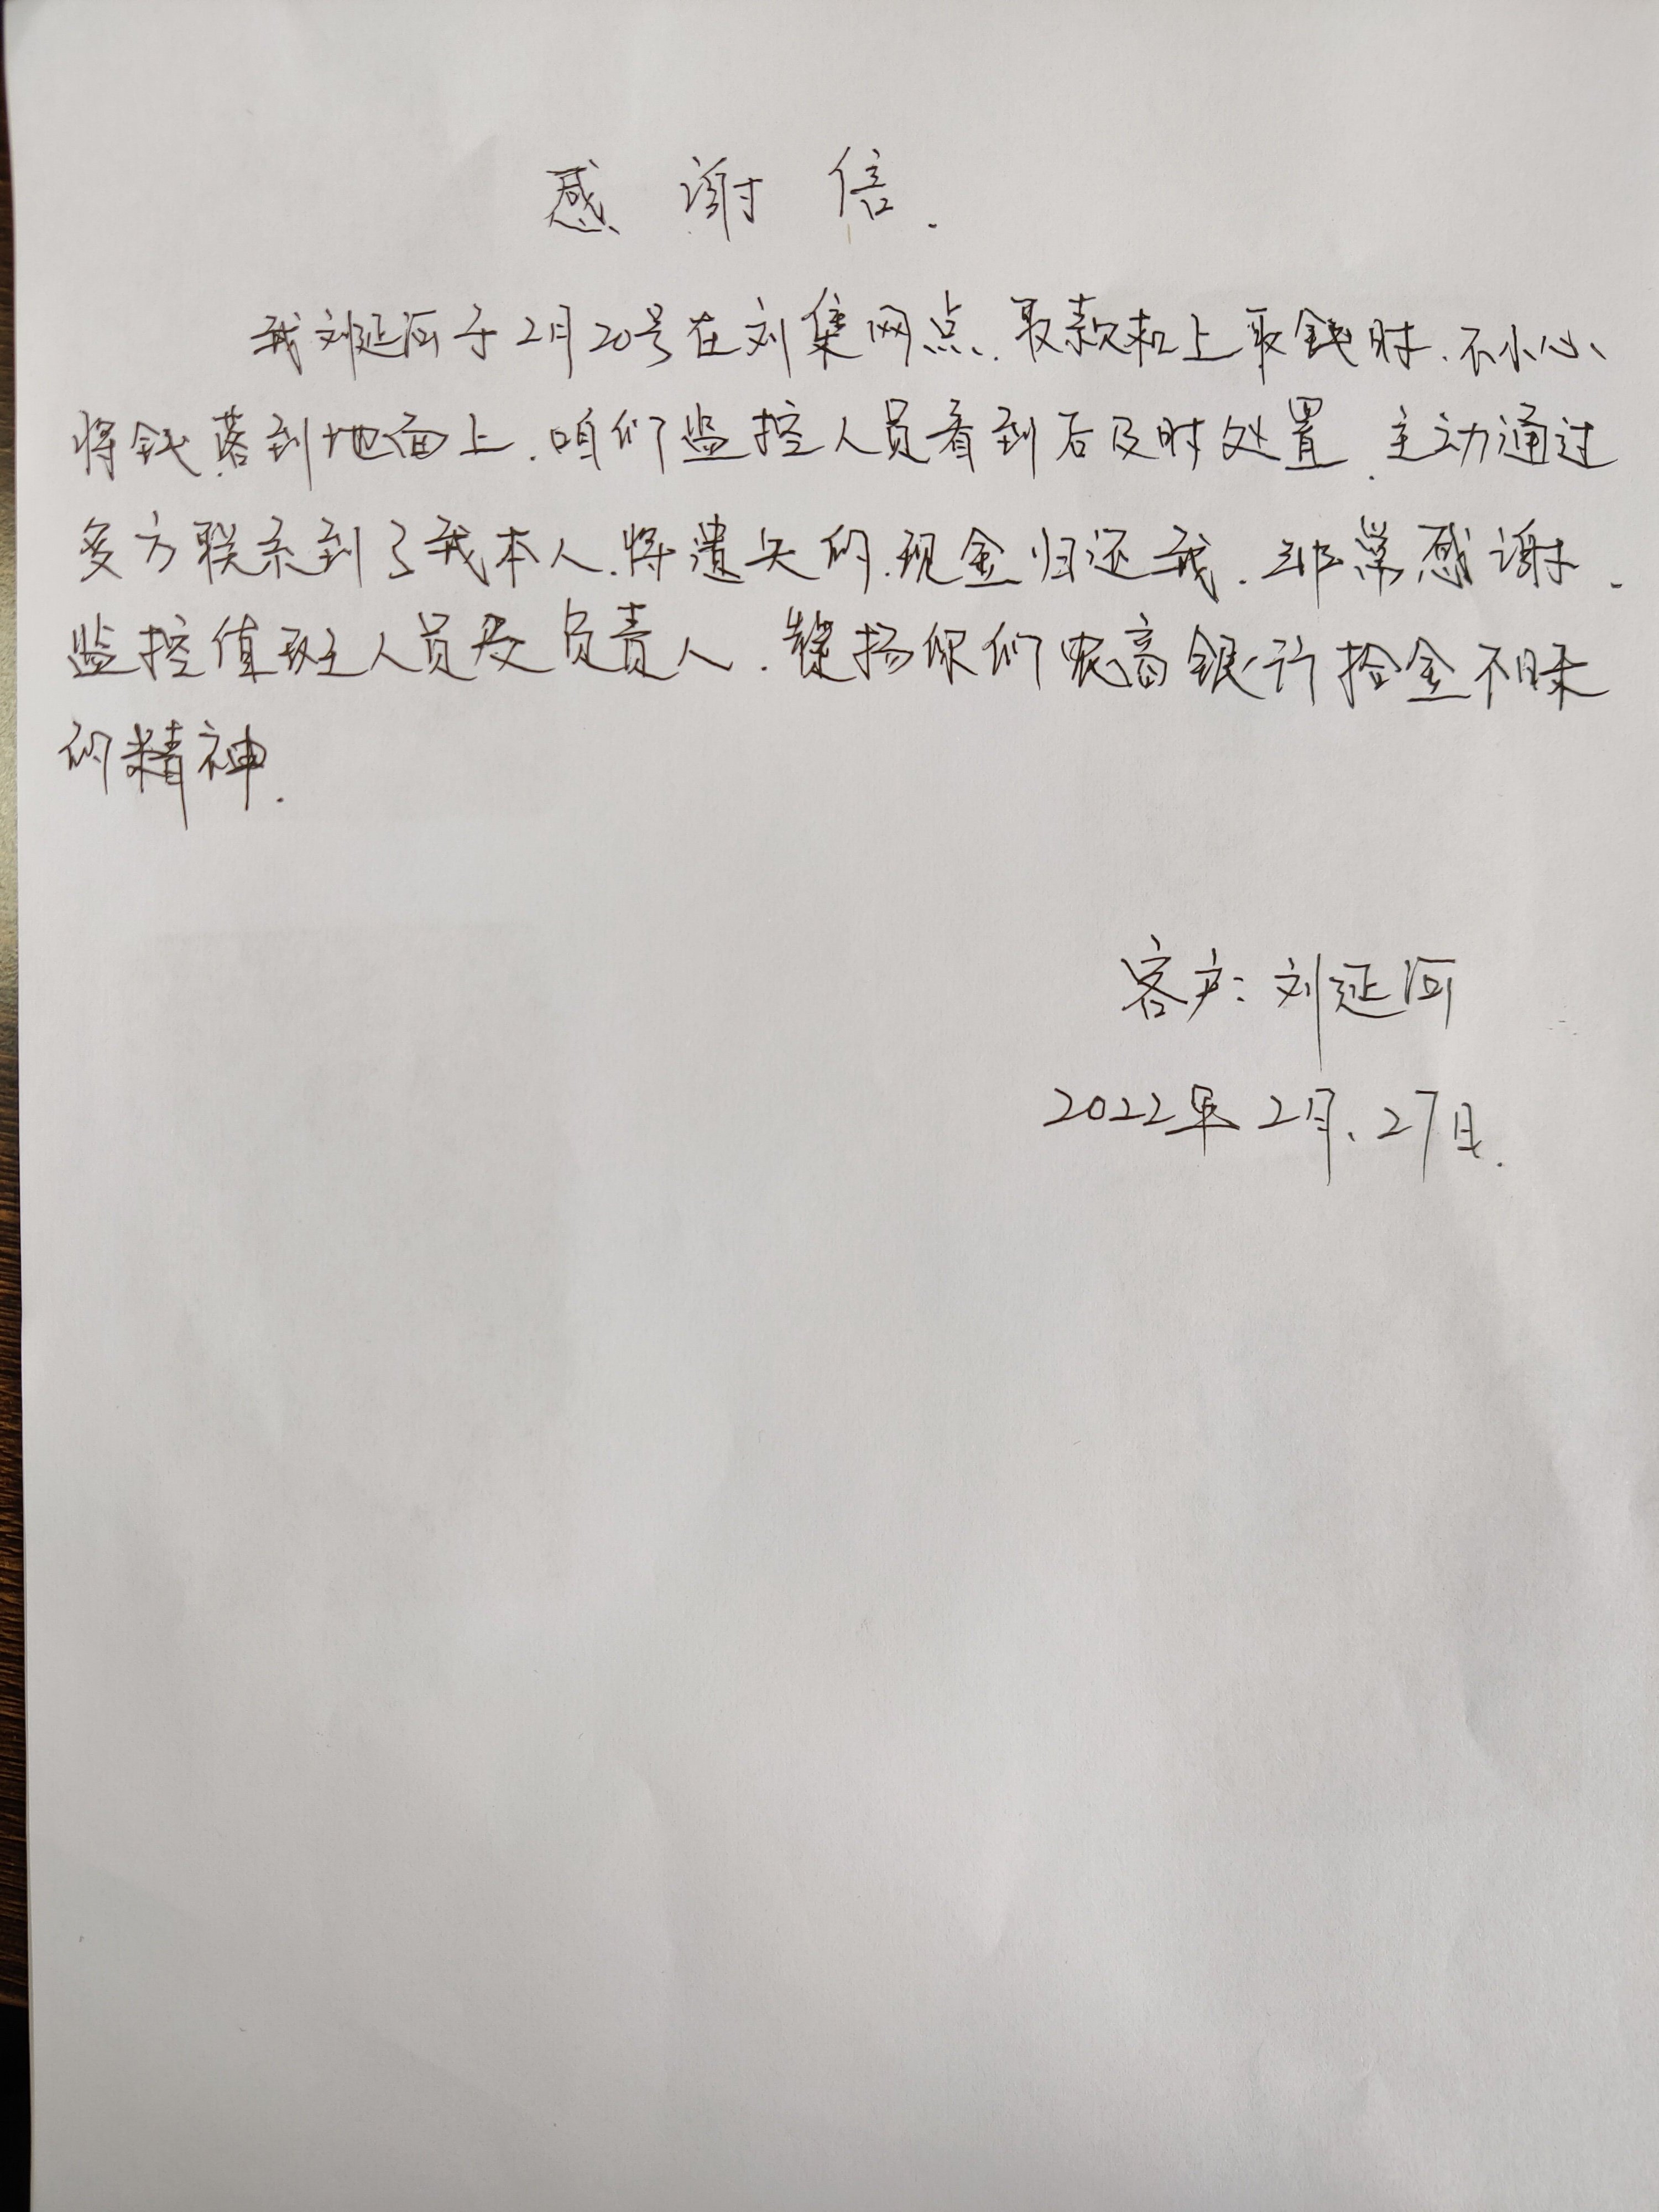 感谢信.
我刘延河于2月20号在刘集网点.取款机上取钱时.不小心
将钱落到地面上.咱们监控人员看到后及时处置.主动通过
多方联系到了我本人.将遗失的.现金归还我.非常感谢.
监控值班人员及负责人.赞扬你们农商银行拾金不昧
的精神.
客户:刘延河
2022年2月.27日.